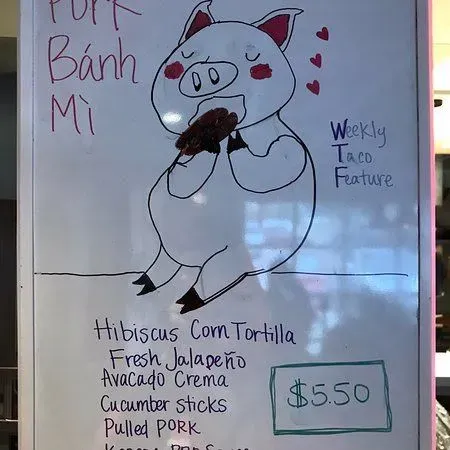 PORK
Bánh
Mì
Weekly
Taco
Feature
Hibiscus Corn Tortilla
Fresh Jalapeño
Avacado Crema
Cucumber Sticks
Pulled PORK
$5.50